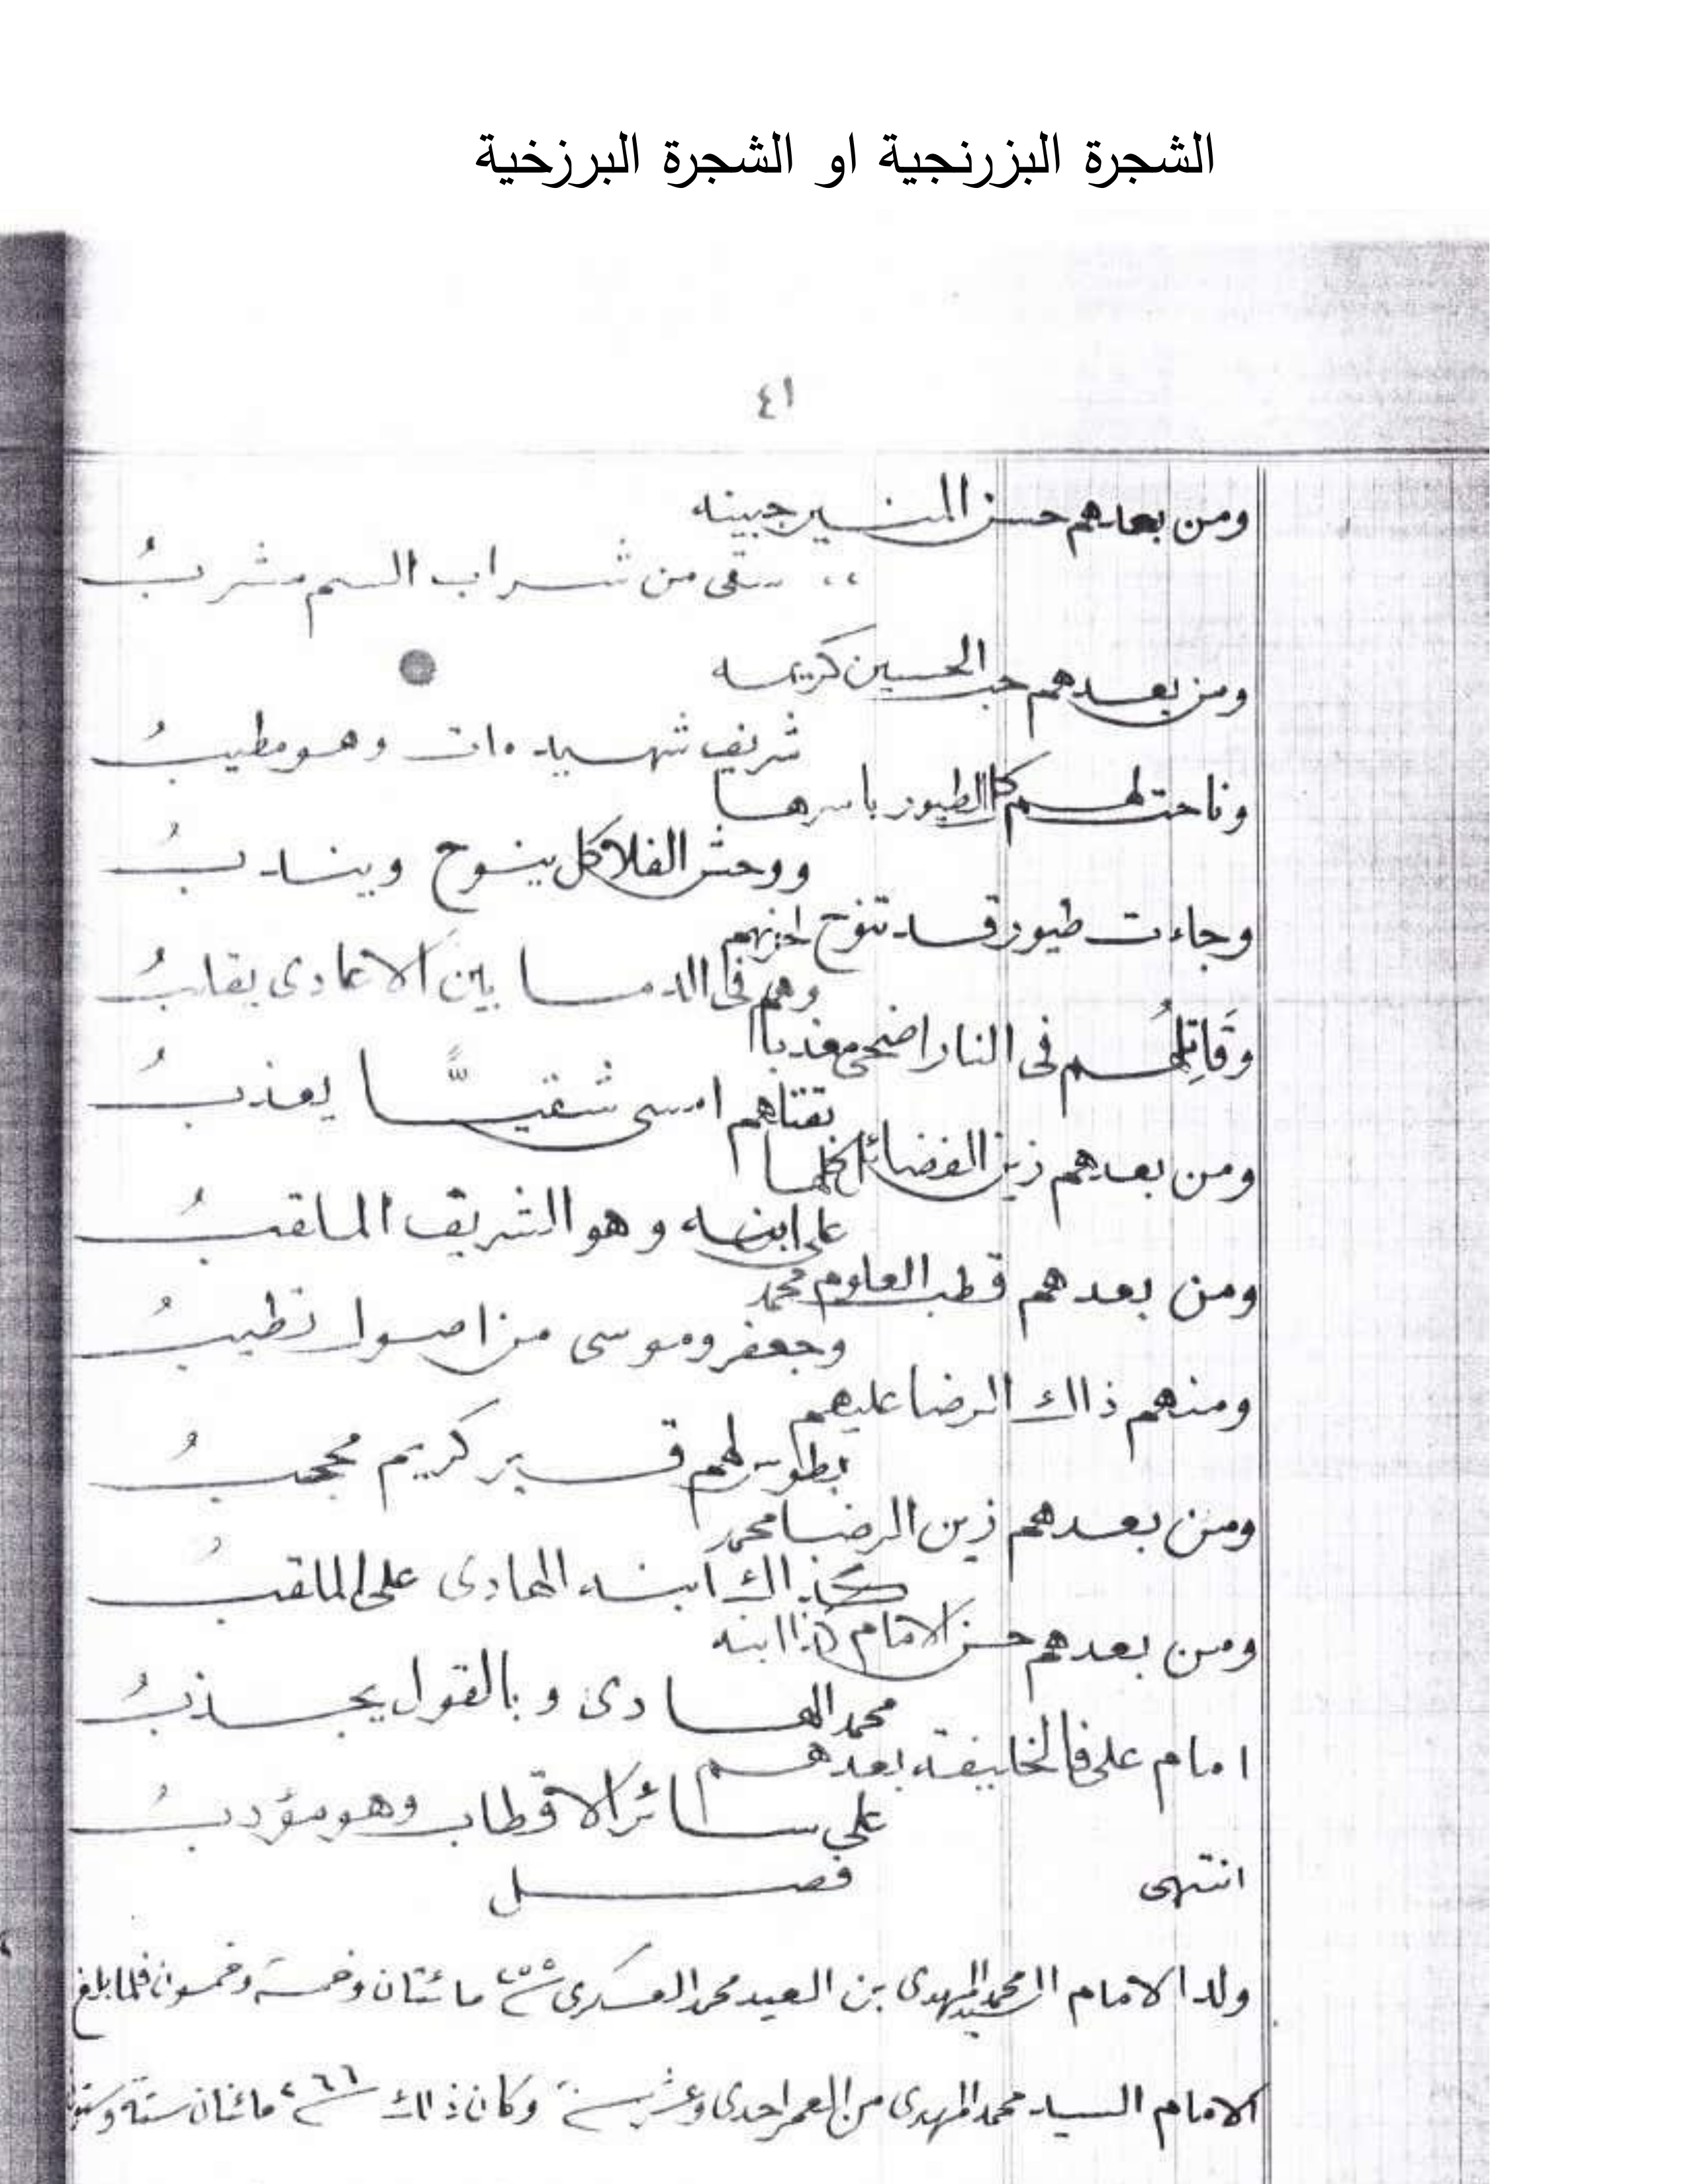 الشجرة البزرنجية او الشجرة البرزخية
٤١
ومن بعدهم حسن المنير جبينه
سقى من شراب السم مشربُ
ومن بعدهم حب الحسين كريمه
شريف شهيد مات وهو مطيبُ
وناحت لهم كل الطيور باسرها
ووحش الفلا كل ينوح ويندبُ
وجاءت طيور قد تنوح لحزنهم
وهم فى الدما بين الاعادى يقلبُ
وقَاتِلُهم فى النار اضحى معذبا
بقتلهم امسى شقيًّا يعذبُ
ومن بعدهم زين الفضائل كلها
على ابنه وهو الشريف الملقبُ
ومن بعدهم قطب العلوم محمد
وجعفر وموسى من اصول تطيبُ
ومنهم ذاك الرضا عليهم
بطوس لهم قبر كريم محجبُ
ومن بعدهم زين الرضا محمد
كذاك ابنه الهادى على الملقبُ
ومن بعدهم حسن الامام كذا ابنه
محمد الهادى وبالقول يجذبُ
امام على فالخليفة بعدهم
على سائر الاقطاب وهو مؤدبُ
انتهى فصل
ولد الامام السيد محمد المهدى بن العيد محمد العسكرى سنة ٢٥٥ مائتان وخمسة وخمسون فلما بلغ
الامام السيد محمد المهدى من العمر احدى وعشر سنة وكان ذلك سنة ٢٦٦ مائتان ستة وستون